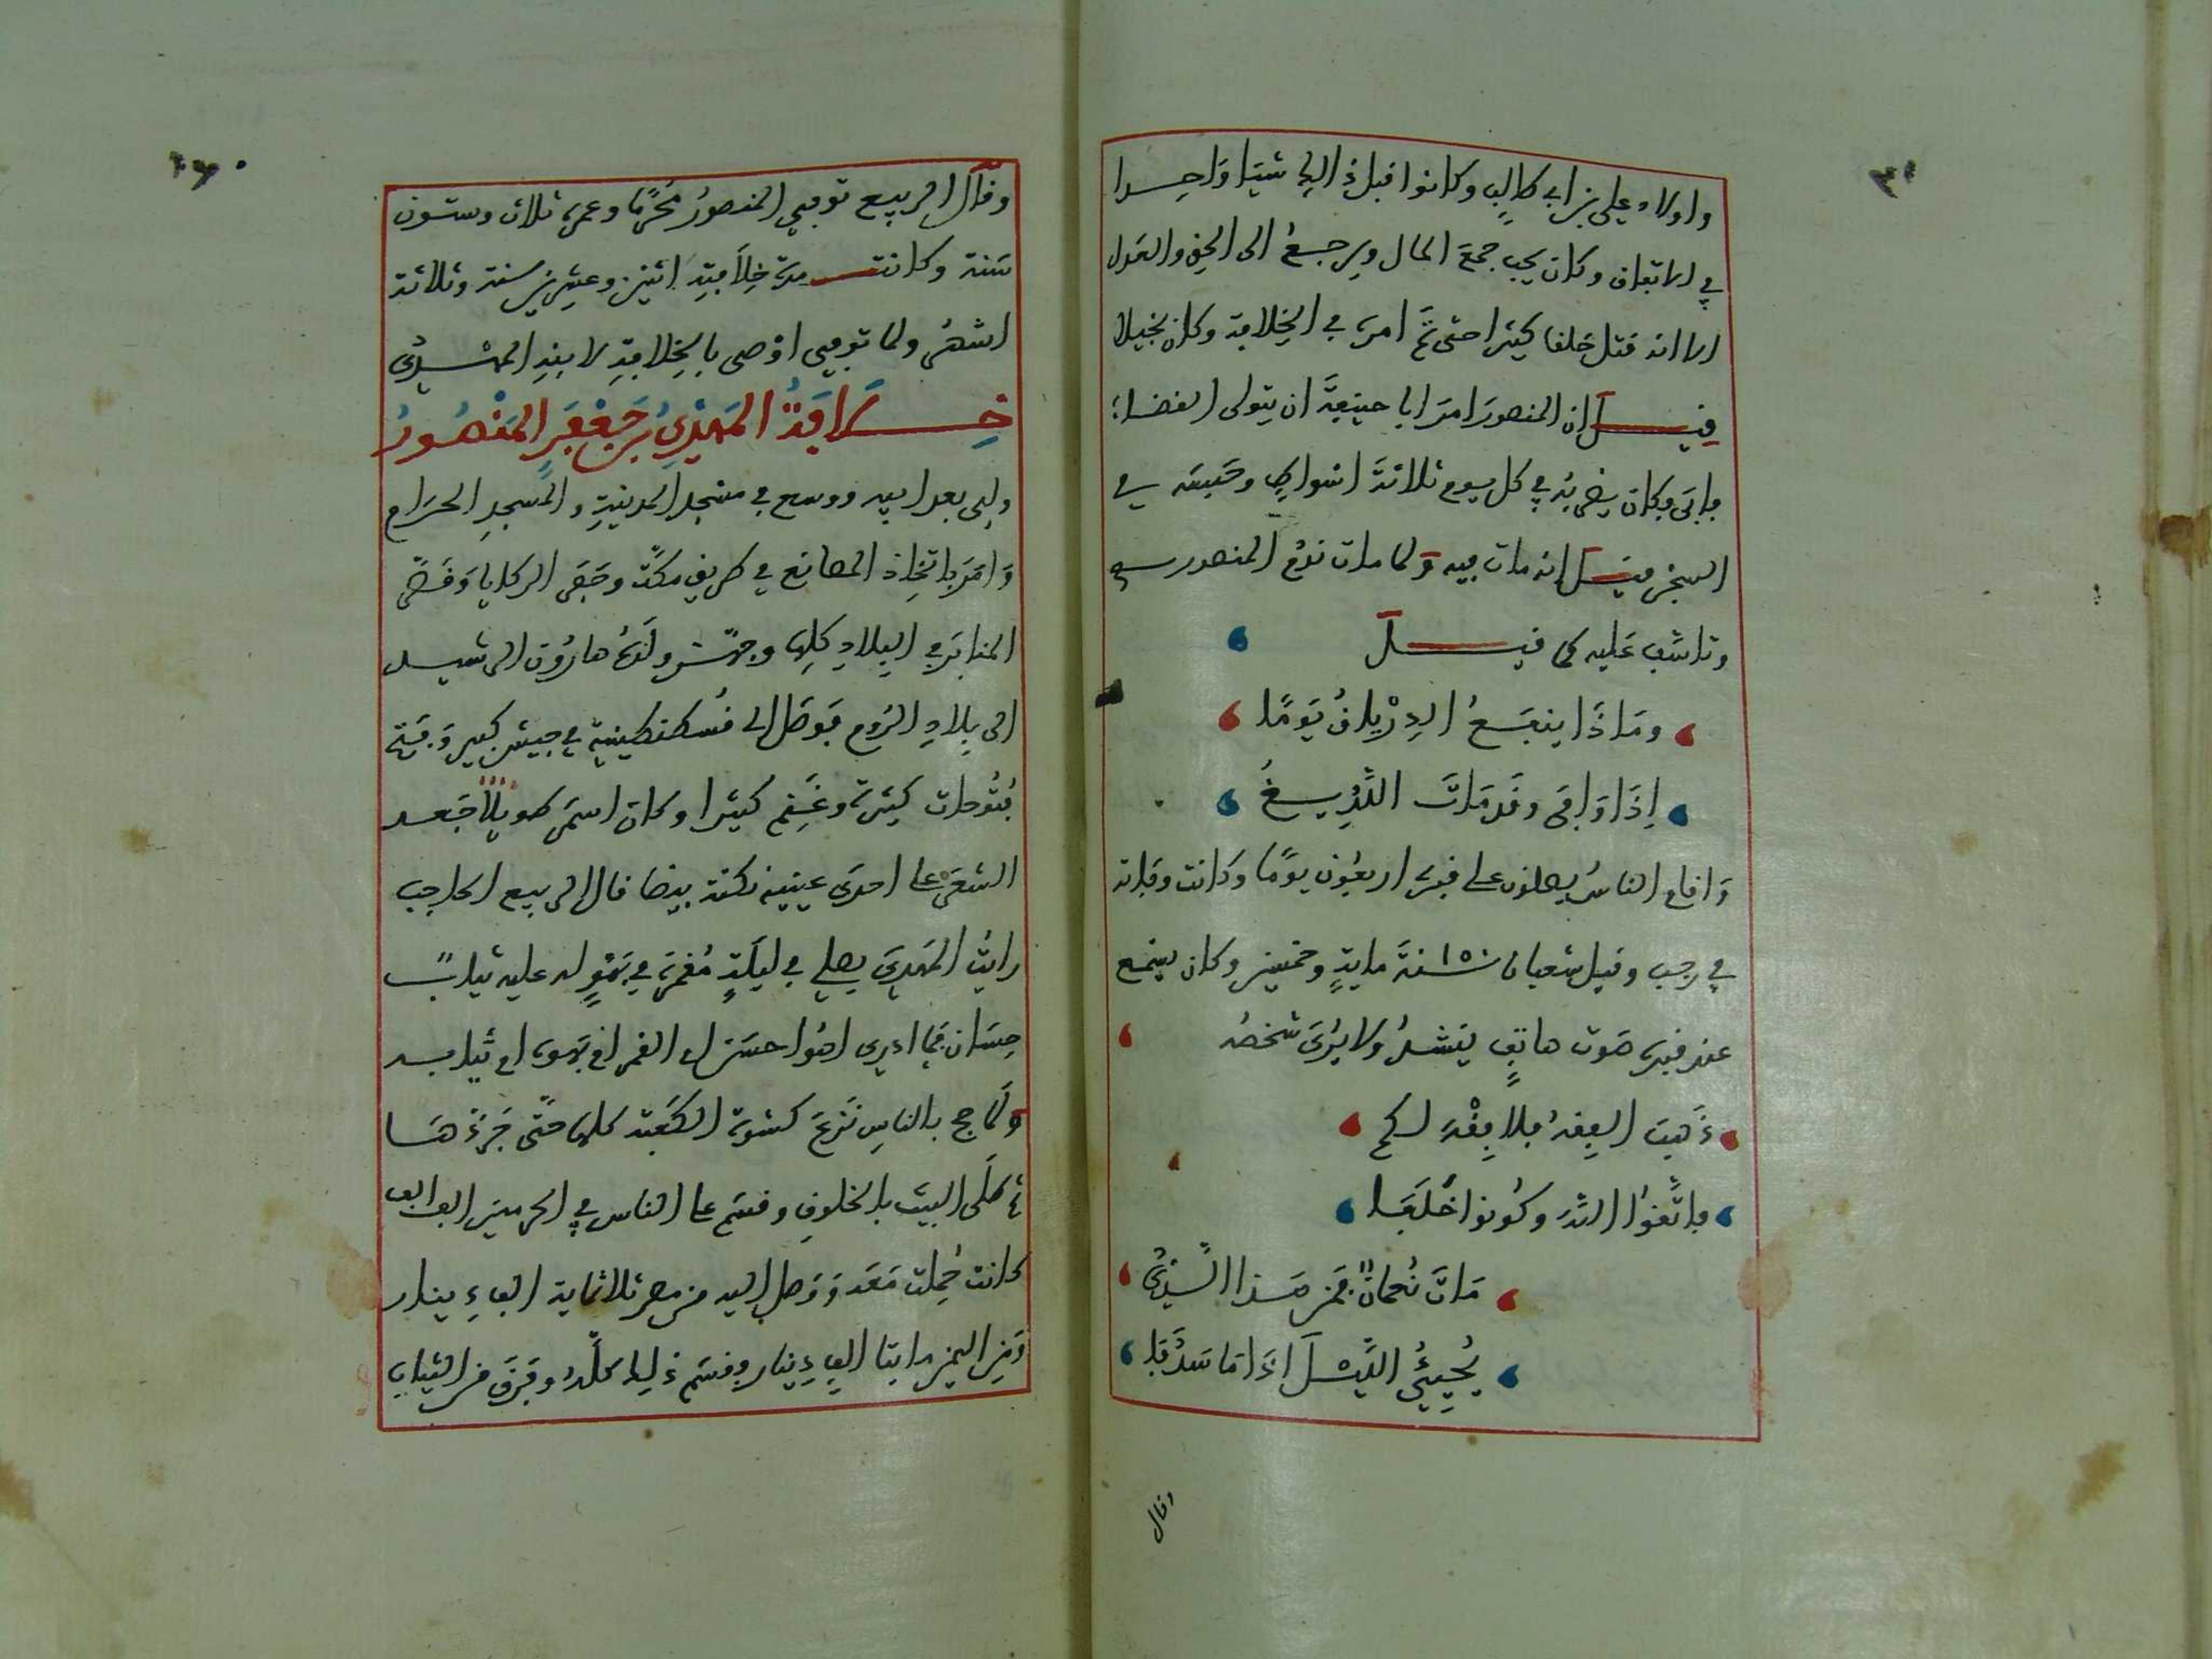 واولاد علي بن ابي طالب وكانوا قبل ذالك شيئا واحدا
في الاتفاق وكان يحب جمع المال ويرجع الى الحق والعدل
الا انه قتل خلقا كثيرا حتى تم امره في الخلافة وكان بخيلا
قيل ان المنصور امر ابا حنيفة ان يتولى القضاء
فابى فكان يضربه في كل يوم ثلاثة اسواط وحبسه في
السجن فقيل انه مات فيه ولما مات ندم المنصور
وتاسف عليه كما قيل
وماذا ينفع الدرياق يوما
إذا وافى وقد مات اللديغ
واقام الناس يصلون على قبره اربعون يوما وكانت وفاته
في رجب وقيل شعبان ١٥٠ سنة ماية وخمسين وكان يسمع
عند قبره صوت هاتف ينشد ولا يرى شخصه
ذهب الفقه فلا فقه لكم
فاتقوا الله وكونوا خلفا
مات نعمان فمن هذا الذي
يحيي الليل اذا ما سدفا
وقال
وقال الربيع توفي المنصور محرما وعمره ثلاث وستون
سنة وكانت مدة خلافته اثنين وعشرين سنة وثلاثة
اشهر ولما توفي اوصى بالخلافة لابنه المهدي
خلافة المهدي بن جعفر المنصور
ولي بعد ابيه ووسع في مسجد المدينة والمسجد الحرام
وامر باتخاذ المصانع في طريق مكة وحفر الركايا وقصر
المنابر في البلاد كلها وجهز ولده هارون الرشيد
الى بلاد الروم فوصل الى قسطنطينية في جيش كبير وفتح
فتوحات كثيرة وغنم كثيرا وكان اسمر طويلا جعد
الشعر على احدى عينيه نكتة بيضا قال الربيع الحاجب
رايت المهدي يصلي في ليلة مقمرة في بهو له عليه ثياب
حسان فما ادري اهو احسن ام القمر ام بهوه ام ثيابه
ولما حج بالناس نزع كسوة الكعبة كلها حتى جردها
ثم طلى البيت بالخلوق وقسم على الناس في الحرمين الف الف
كانت حملت معه ووصل اليه من مصر ثلاثماية الف دينار
ومن اليمن مايتا الف دينار وقسم ذلك كله وفرق من الثياب